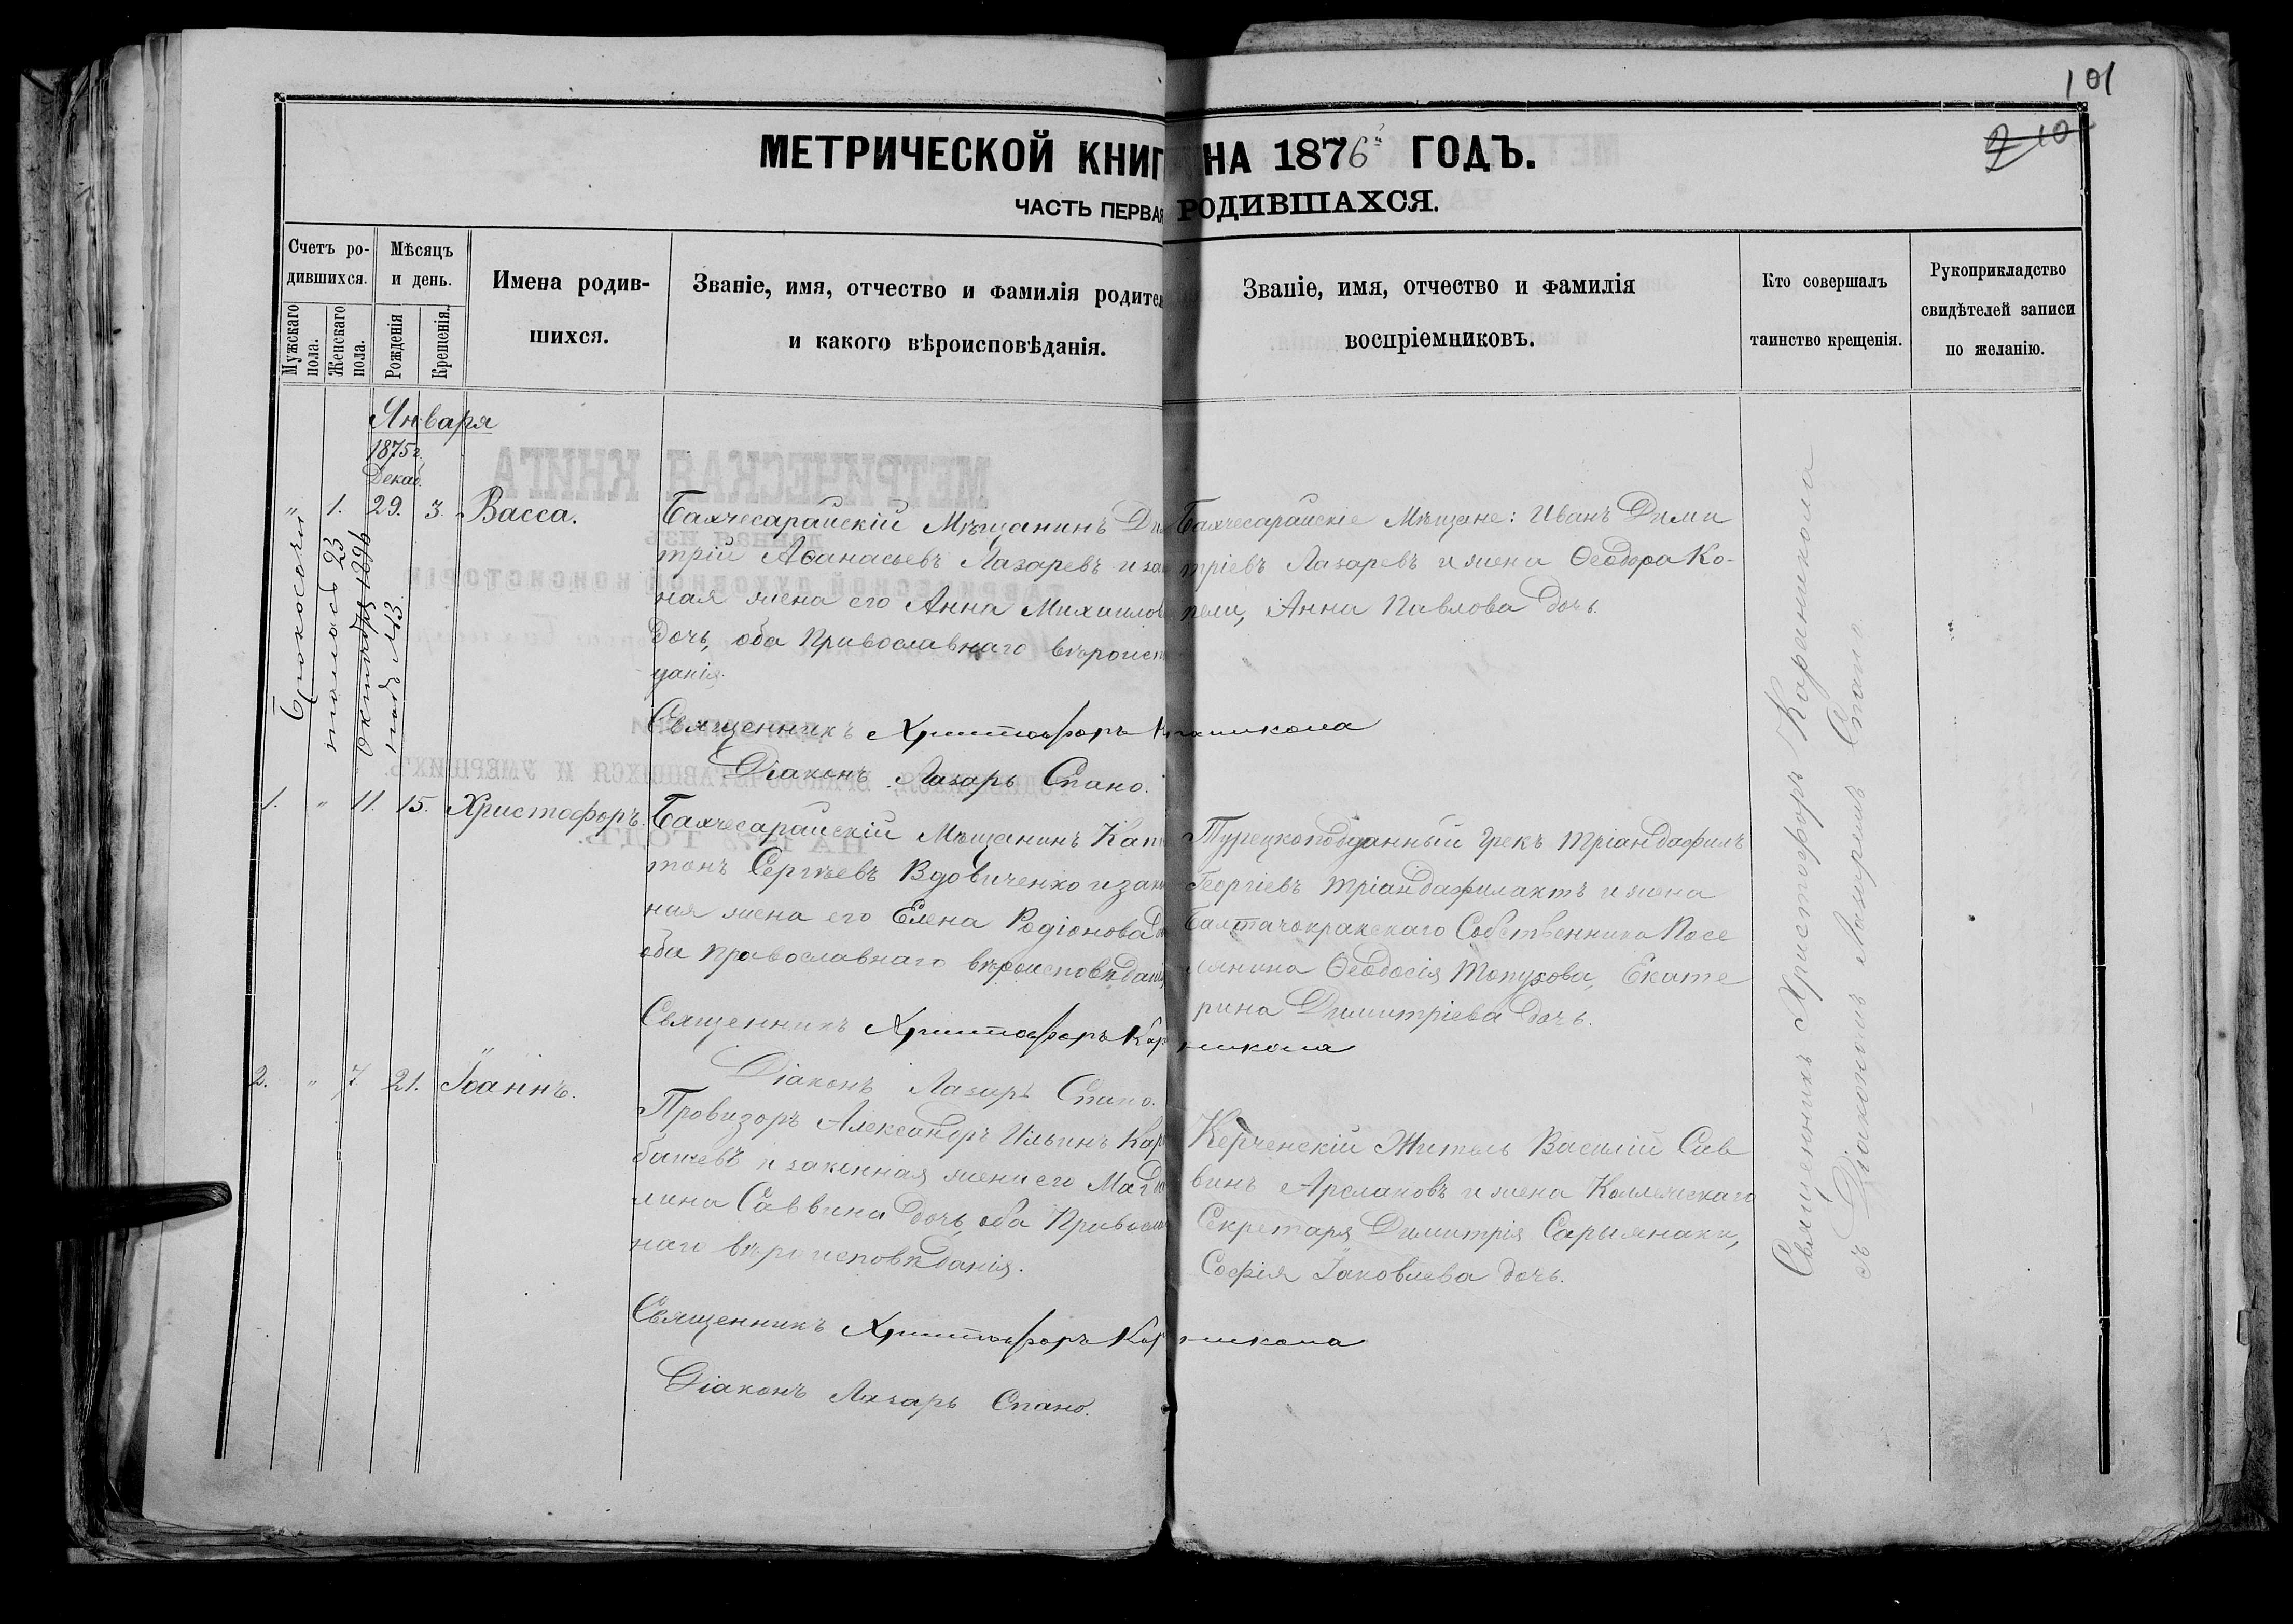 101
МЕТРИЧЕСКОЙ КНИГ НА 1876 ГОДЪ.
ЧАСТЬ ПЕРВАЯ РОДИВШАХСЯ.
Счетъ ро-
дившихся.
Мужскаго пола.
Женскаго пола.
Мѣсяцъ
и день.
Рожденія
Крещенія.
Имена родив-
шихся.
Званіе, имя, отчество и фамилія родител
и какого вѣроисповѣданія.
Званіе, имя, отчество и фамилія
воспріемниковъ.
Кто совершалъ
таинство крещенія.
Рукоприкладство
свидѣтелей записи
по желанію.
Января
1875 г.
Декаб.
" 1. 29. 3. Васса.
Бахчесарайскій Мѣщанинъ Ди
трій Аѳанасьевъ Лазаревъ и зак
ная жена его Анна Михаилов
дочь, оба Православнаго вѣроисп
данія.
Священникъ Христофоръ Караникола
Діаконъ Лазарь Спано.
Бахчесарайскіе Мѣщане: Иванъ Дими
тріевъ Лазаревъ и жена Ѳеодора Ко-
пели, Анна Павлова дочь.
1. " 11. 15. Христофоръ.
Бахчесарайскій Мѣщанинъ Капи
тонъ Сергѣевъ Вдовиченко и зако
ная жена его Елена Родіонова до
оба Православнаго вѣроисповѣданія
Священникъ Христофоръ Караникола
Діаконъ Лазарь Спано.
Турецкоподданный Грекъ Тріандафилъ
Георгіевъ Тріандафилактъ и жена
Балтачокракскаго Собственника Посе
лянина Ѳеодосія Топузова, Екате
рина Димитріева дочь.
2. " 7 21. Іоаннъ.
Провизоръ Александръ Ильинъ Кара
башевъ и законная жена его Магда
лина Саввина дочь, оба Правосла
наго вѣроисповѣданія.
Священникъ Христофоръ Караникола
Діаконъ Лазарь Спано.
Керченскій Житель Василій Сав
винъ Арслановъ и жена Коллежскаго
Секретаря Димитрія Сарыянаки,
Софія Іаковлева дочь.
Священникъ Христофоръ Караникола
съ Діакономъ Лазаремъ Спано.